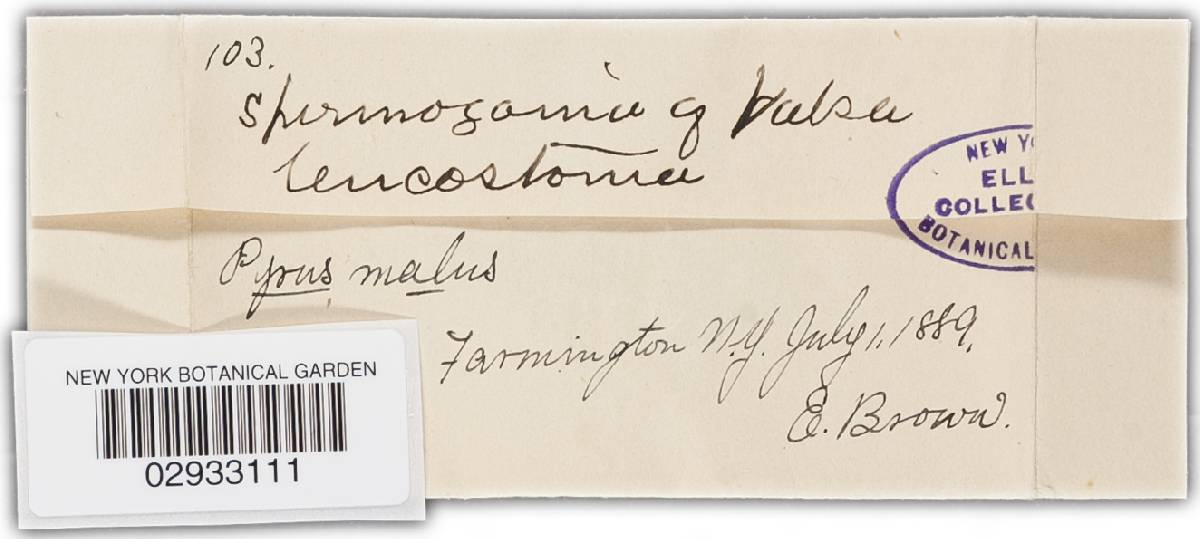 103.
Spermogonia of Valsa
leucostoma
NEW YO
ELL
COLLEC
BOTANICAL
Pyrus malus
Farmington N.Y. July 1, 1889.
E. Brown.
NEW YORK BOTANICAL GARDEN
02933111